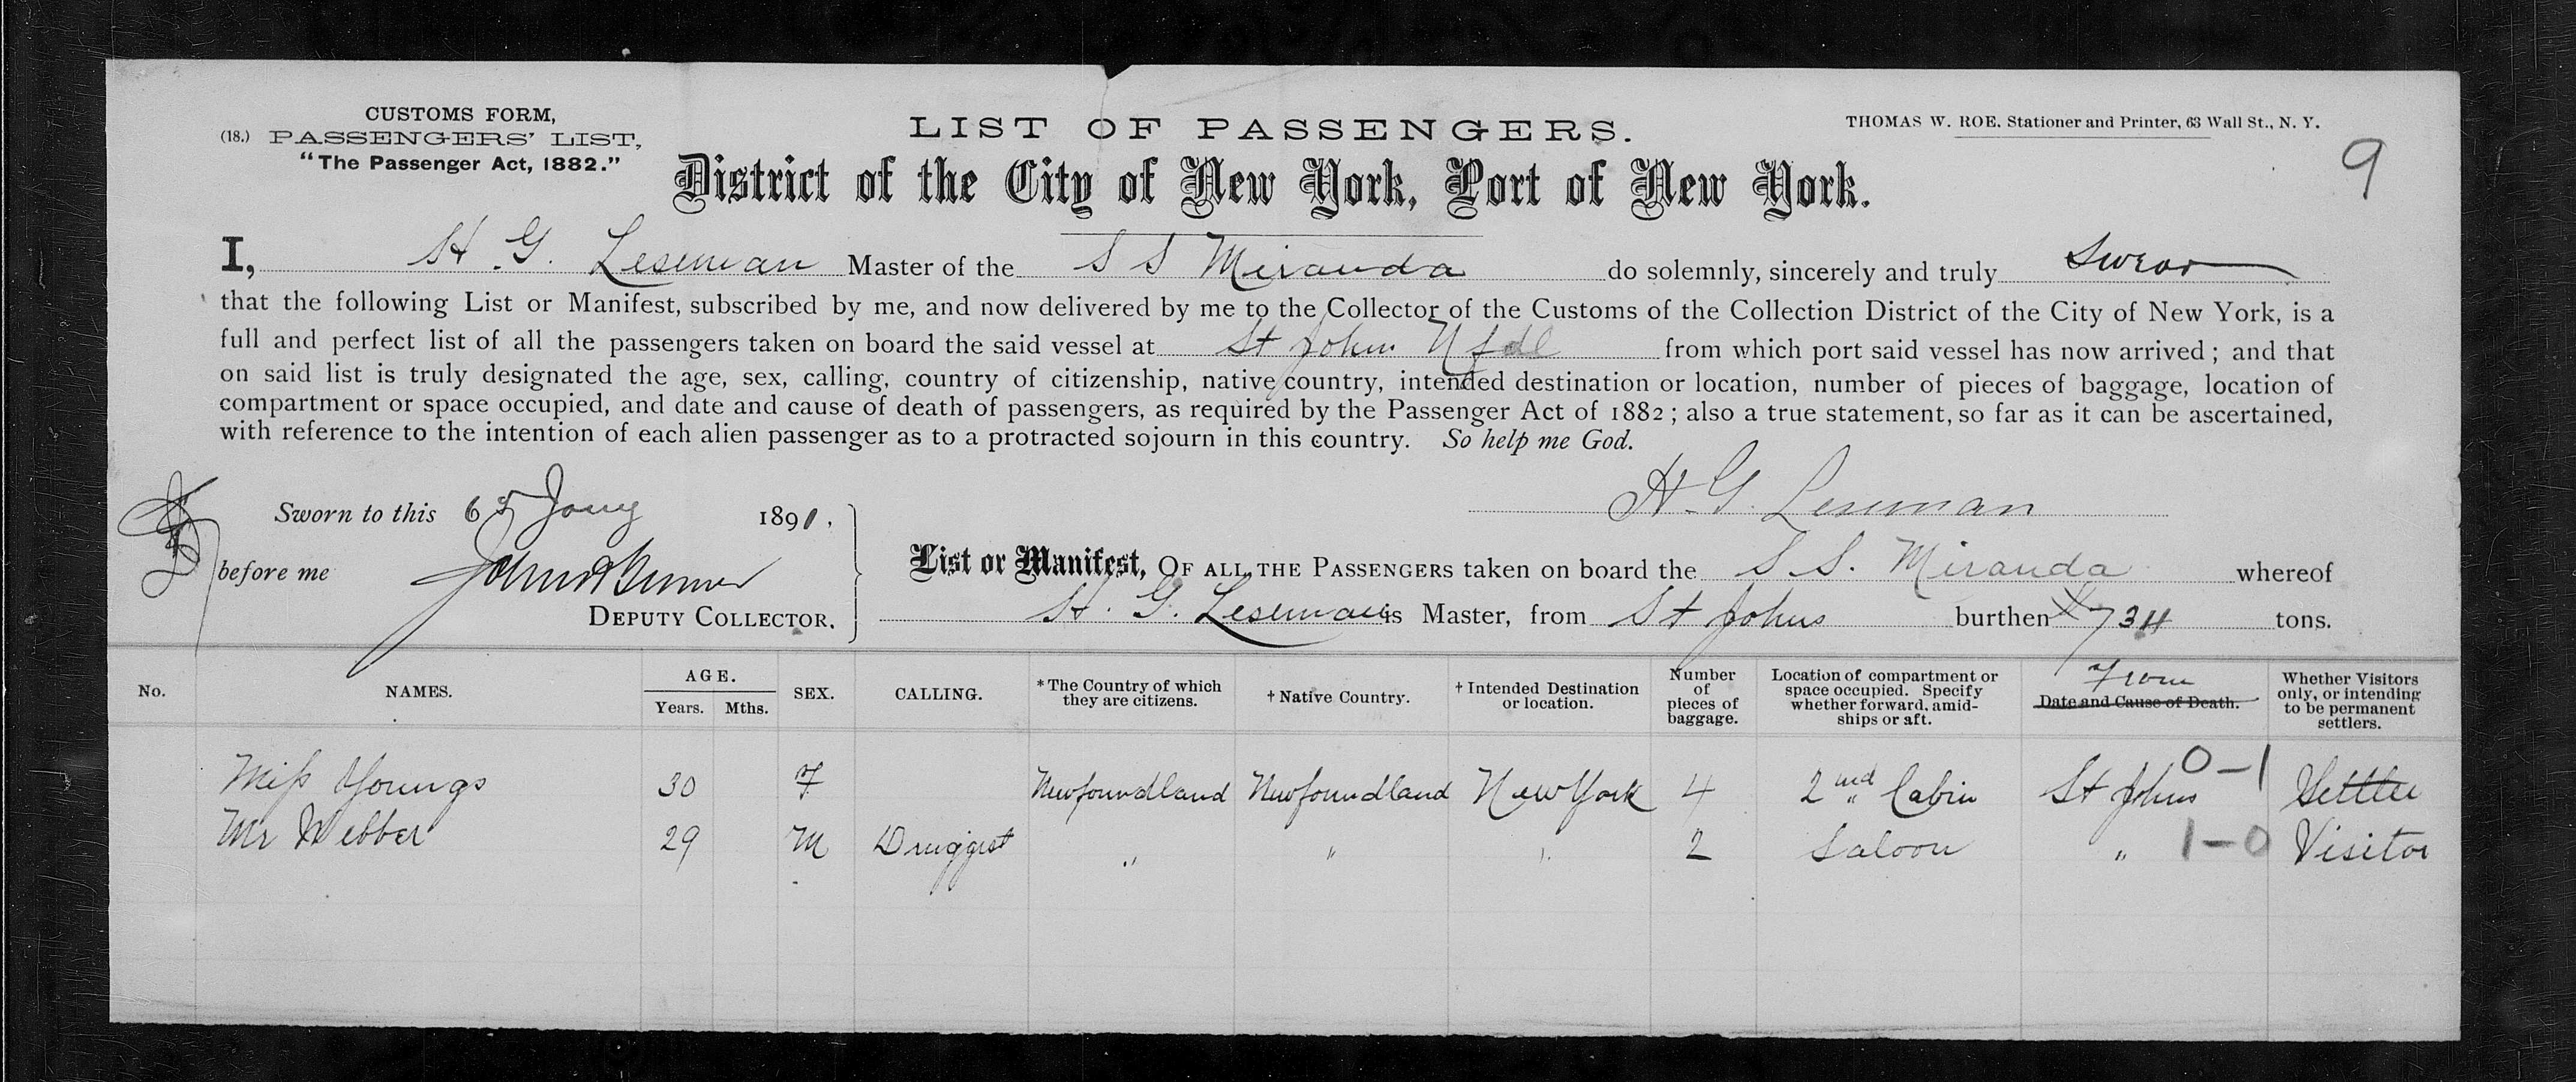 CUSTOMS FORM,
(18.) PASSENGERS' LIST,
"The Passenger Act, 1882."
LIST OF PASSENGERS.
THOMAS W. ROE. Stationer and Printer, 63 Wall St., N. Y.
9
District of the City of New York, Port of New York.
I, H. G. Leseman Master of the S S Miranda do solemnly, sincerely and truly Swear
that the following List or Manifest, subscribed by me, and now delivered by me to the Collector of the Customs of the Collection District of the City of New York, is a
full and perfect list of all the passengers taken on board the said vessel at St John Nfdl from which port said vessel has now arrived; and that
on said list is truly designated the age, sex, calling, country of citizenship, native country, intended destination or location, number of pieces of baggage, location of
compartment or space occupied, and date and cause of death of passengers, as required by the Passenger Act of 1882; also a true statement, so far as it can be ascertained,
with reference to the intention of each alien passenger as to a protracted sojourn in this country. So help me God.
H. G. Leseman
Sworn to this 6 Jany 1891.
before me
DEPUTY COLLECTOR.
List or Manifest, OF ALL THE PASSENGERS taken on board the S S. Miranda whereof
H. G. Leseman is Master, from St Johns burthen 734 tons.
No. NAMES. AGE. Years. Mths. SEX. CALLING. * The Country of which they are citizens. † Native Country. † Intended Destination or location. Number of pieces of baggage. Location of compartment or space occupied. Specify whether forward, amidships or aft. From Date and Cause of Death. Whether Visitors only, or intending to be permanent settlers.
Miss Youngs 30 F Newfoundland Newfoundland New York 4 2nd Cabin St Johns 0-1 Settler
Mr Webber 29 M Druggist " " " 2 Saloon " 1-0 Visitor